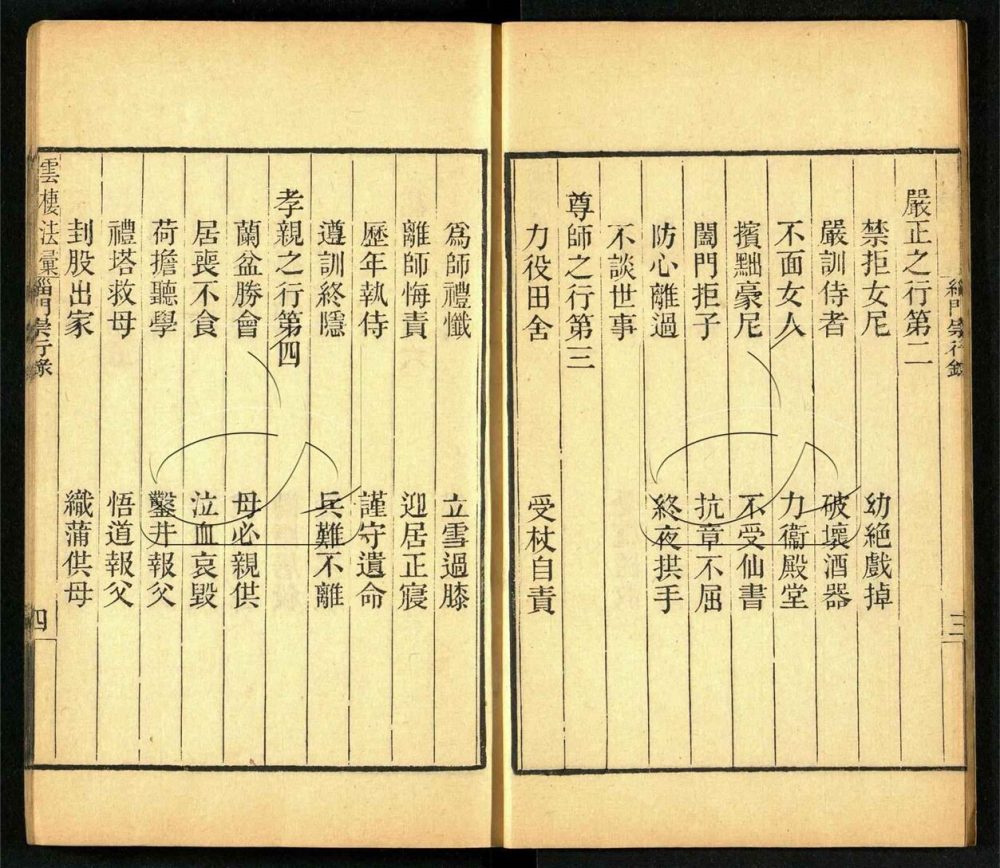 緇門崇行錄
三
嚴正之行第二
禁拒女尼 幼絕戲掉
嚴訓侍者 破壞酒器
不面女人 力衞殿堂
擯黜豪尼 不受仙書
闔門拒子 抗章不屈
防心離過 終夜拱手
不談世事
尊師之行第三
力役田舍 受杖自責
爲師禮懺 立雪過膝
離師悔責 迎居正寢
歷年執侍 謹守遺命
遵訓終隱 兵難不離
孝親之行第四
蘭盆勝會 母必親供
居喪不食 泣血哀毀
荷擔聽學 鑿井報父
禮塔救母 悟道報父
刲股出家 織蒲供母
雲棲法彙 緇門崇行錄
四